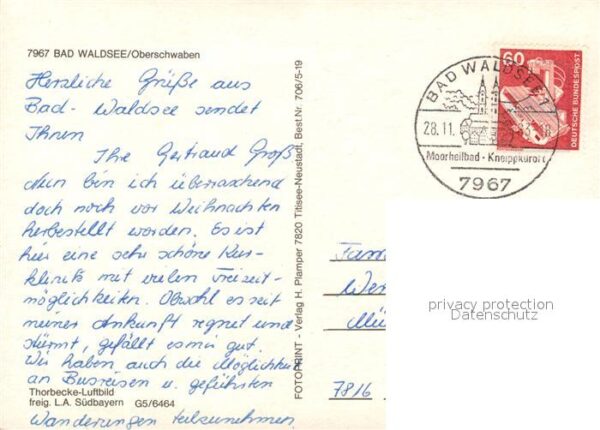 7967 BAD WALDSEE/Oberschwaben
Herzliche Grüße aus
Bad-Waldsee sendet
Ihnen
Ihre Gertraud Groß
Nun bin ich überraschend
doch noch vor Weihnachten
herbestellt worden. Es ist
hier eine sehr schöne Kur-
klinik mit vielen Freizeit-
möglichkeiten. Obwohl es seit
meiner Ankunft regnet und
stürmt, gefällt es mir gut.
Wir haben auch die Möglichkeit
an Busreisen u. geführten
Wanderungen teilzunehmen
Thorbecke-Luftbild
freig. L.A. Südbayern G5/6464
FOTOPRINT - Verlag H. Plamper 7820 Titisee-Neustadt, Best.Nr. 706/5-19
BAD WALDSEE 1
28.11.
Moorheilbad · Kneippkurort
7967
60
DEUTSCHE BUNDESPOST
Fam
Wer
Mü
7816
privacy protection
Datenschutz